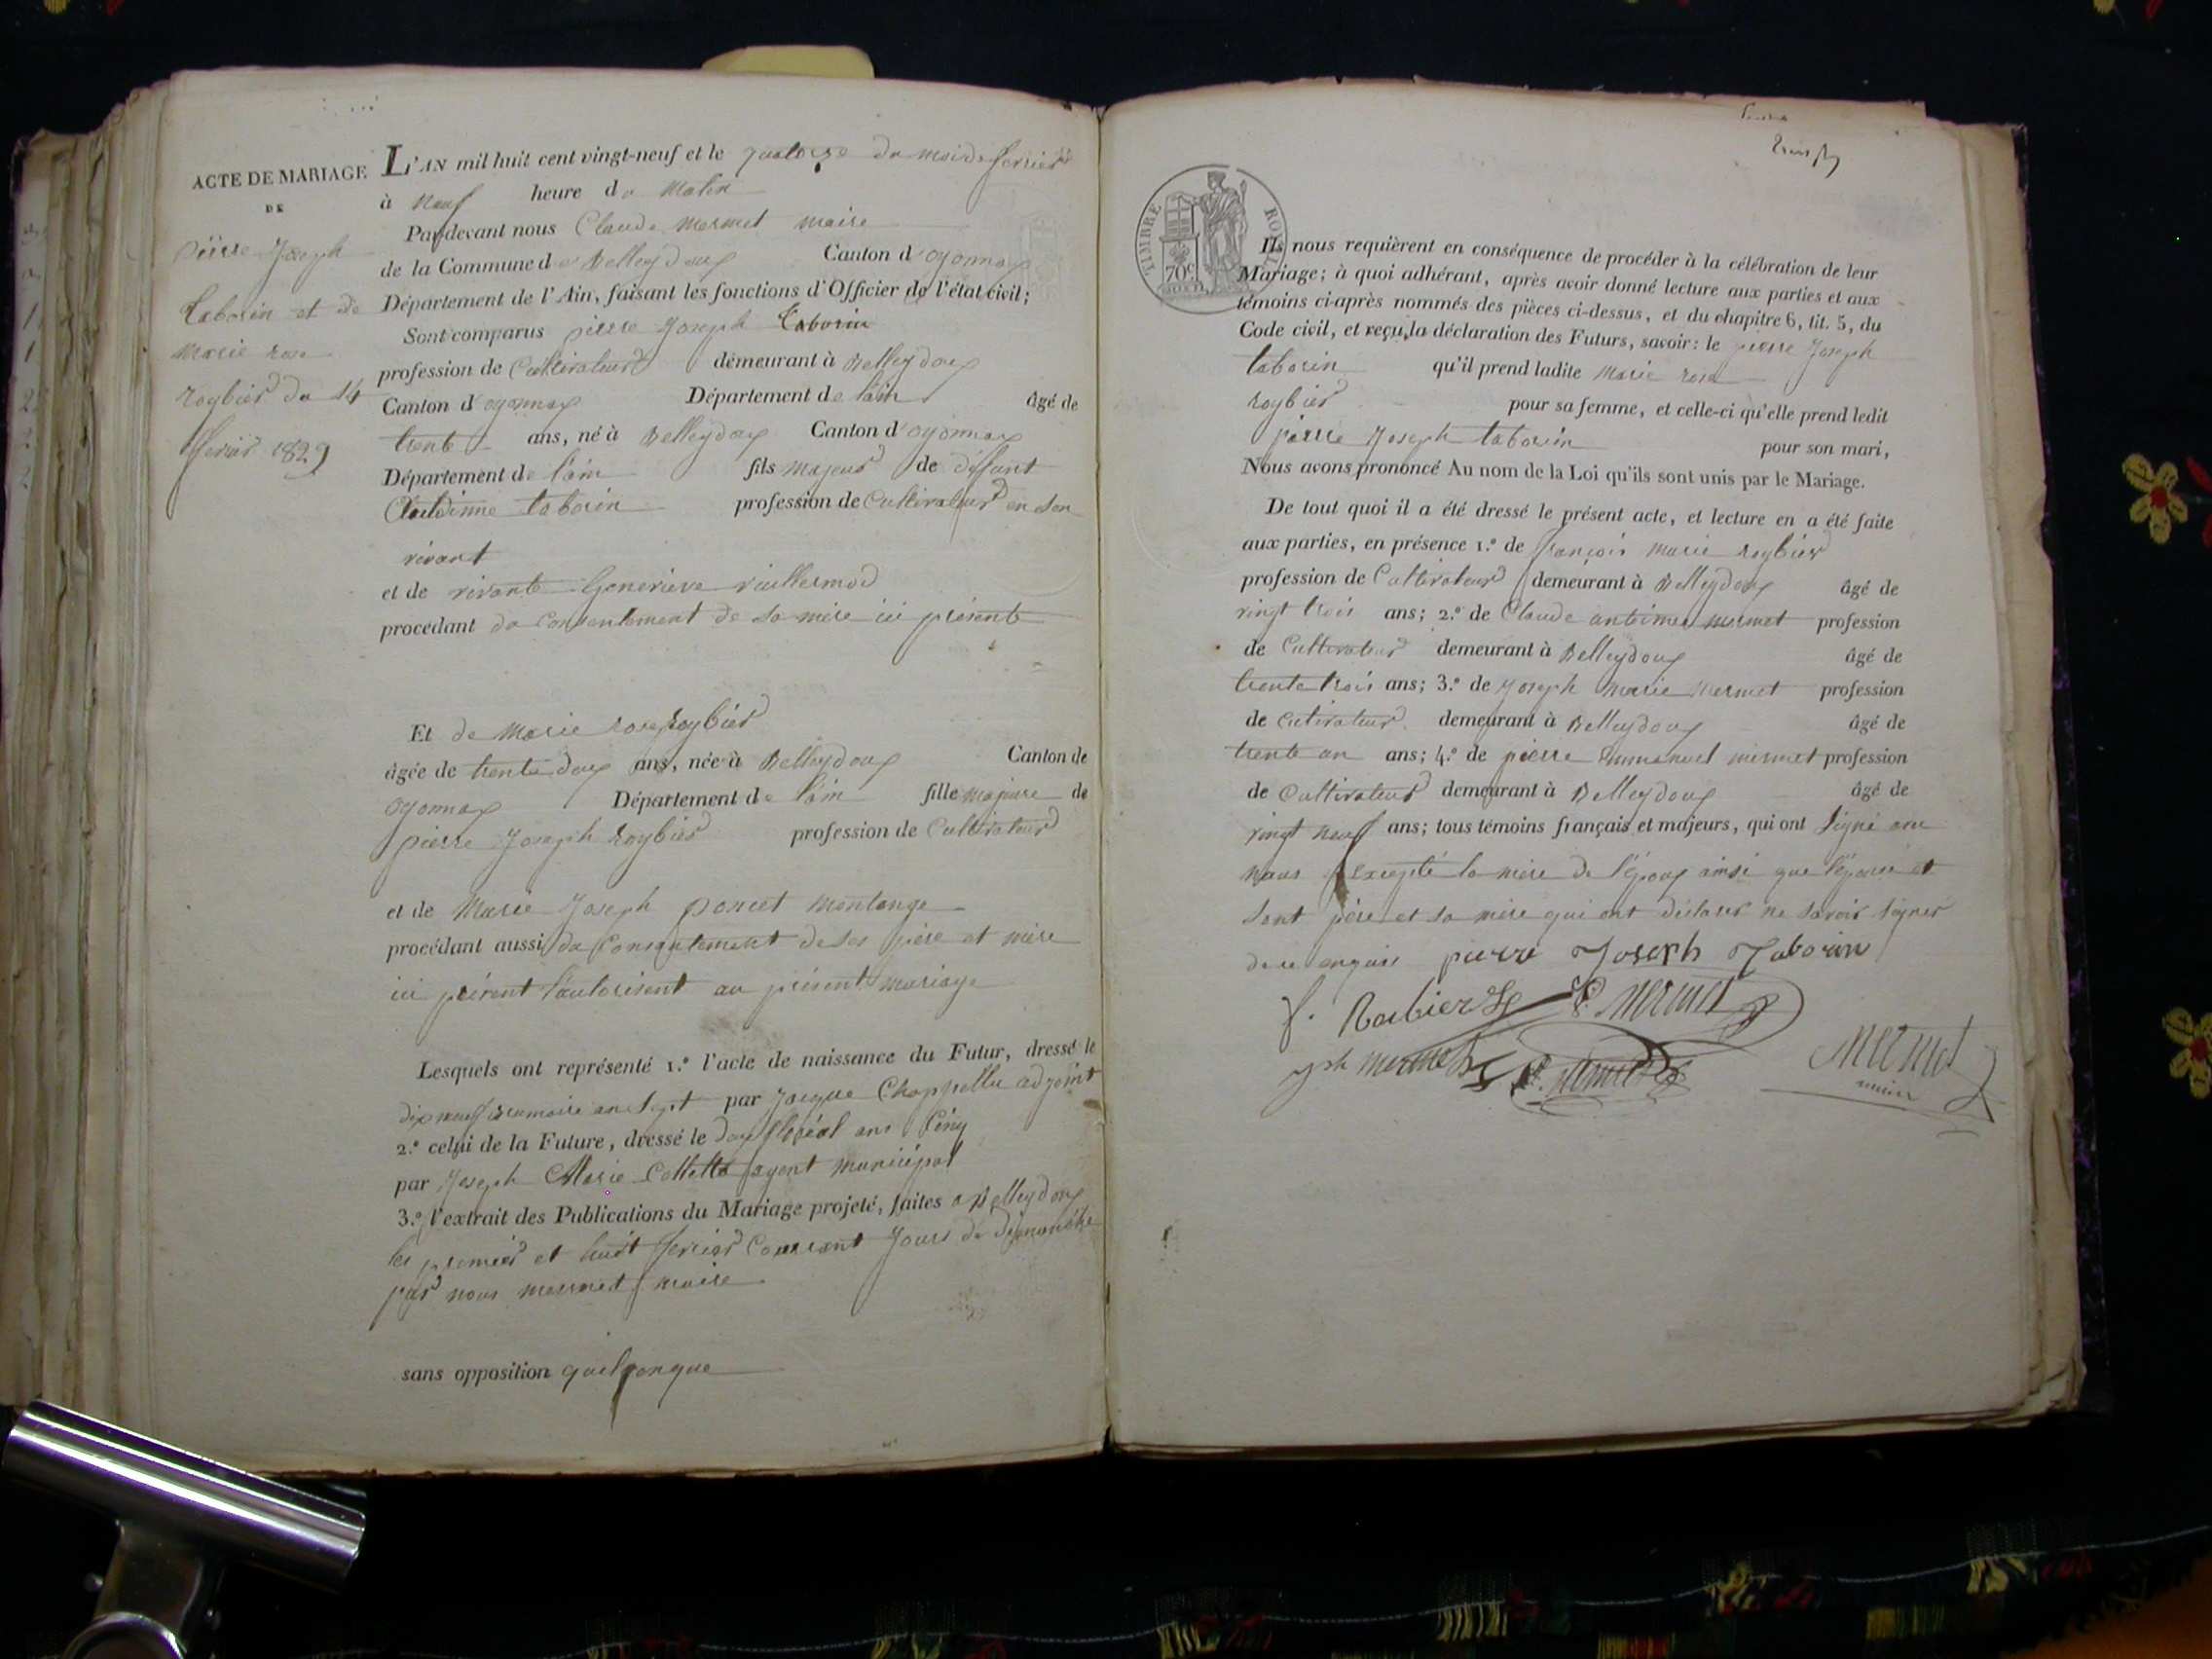 ACTE DE MARIAGE
DE
Pierre Joseph
taborin et de
Marie rose
roybier du 14
fevrier 1829
L'AN mil huit cent vingt-neuf et le quatorze du mois de fevrier
à Neuf heure du Matin
Pardevant nous Claude Mermet maire
de la Commune de Belleydoux Canton d'oyonnax
Département de l'Ain, faisant les fonctions d'Officier de l'état civil;
Sont comparus pierre Joseph taborin
profession de Cultivateur demeurant à Belleydoux
Canton d'oyonnax Département de l'ain âgé de
trente ans, né à Belleydoux Canton d'oyonnax
Département de l'ain fils majeur de défunt
taborin profession de Cultivateur en son
vivant
et de vivante Genevieve vuillermod
procédant du Consentement de sa mère ici présente
Et de Marie rose roybier
âgée de trente deux ans, née à Belleydoux Canton de
oyonnax Département de l'ain fille majeure de
pierre Joseph roybier profession de Cultivateur
et de Marie Joseph poncet montange
procédant aussi du Consentement de ses père et mère
ici présent l'autorisent au présent mariage
Lesquels ont représenté 1.º l'acte de naissance du Futur, dressé le
dix neuf brumaire an sept par Jacque Chappellu adjoint
2.º celui de la Future, dressé le deux floréal ans Cinq
par Joseph Marie Collette agent municipal
3.º l'extrait des Publications du Mariage projeté, faites a Belleydoux
les premier et huit fevrier Courrant Jours de dimanche
par nous mermet maire
sans opposition quelqonque
TIMBRE ROYAL
70c
Ils nous requièrent en conséquence de procéder à la célébration de leur
Mariage; à quoi adhérant, après avoir donné lecture aux parties et aux
témoins ci-après nommés des pièces ci-dessus, et du chapitre 6, tit. 5, du
Code civil, et reçu la déclaration des Futurs, savoir: le pierre Joseph
taborin qu'il prend ladite Marie rose
roybier pour sa femme, et celle-ci qu'elle prend ledit
pierre Joseph taborin pour son mari,
Nous avons prononcé Au nom de la Loi qu'ils sont unis par le Mariage.
De tout quoi il a été dressé le présent acte, et lecture en a été faite
aux parties, en présence 1.º de françois marie roybier
profession de Cultivateur demeurant à Belleydoux âgé de
vingt trois ans; 2.º de Claude antime mermet profession
de Cultivateur demeurant à Belleydoux âgé de
trente trois ans; 3.º de Joseph Marie Mermet profession
de Cutivateur demeurant à Belleydoux âgé de
trente un ans; 4.º de pierre Emmanuel mermet profession
de Cultivateur demeurant à Belleydoux âgé de
vingt neuf ans; tous témoins français et majeurs, qui ont Signé avec
nous excepté la mère de l'époux ainsi que l'épouse et
sont père et sa mère qui ont déclarer ne savoir signer
de ce enquis pierre Joseph Taborin
f. Roibier C. Mermet
jph mermet P. E. Mermet Mermet
maire